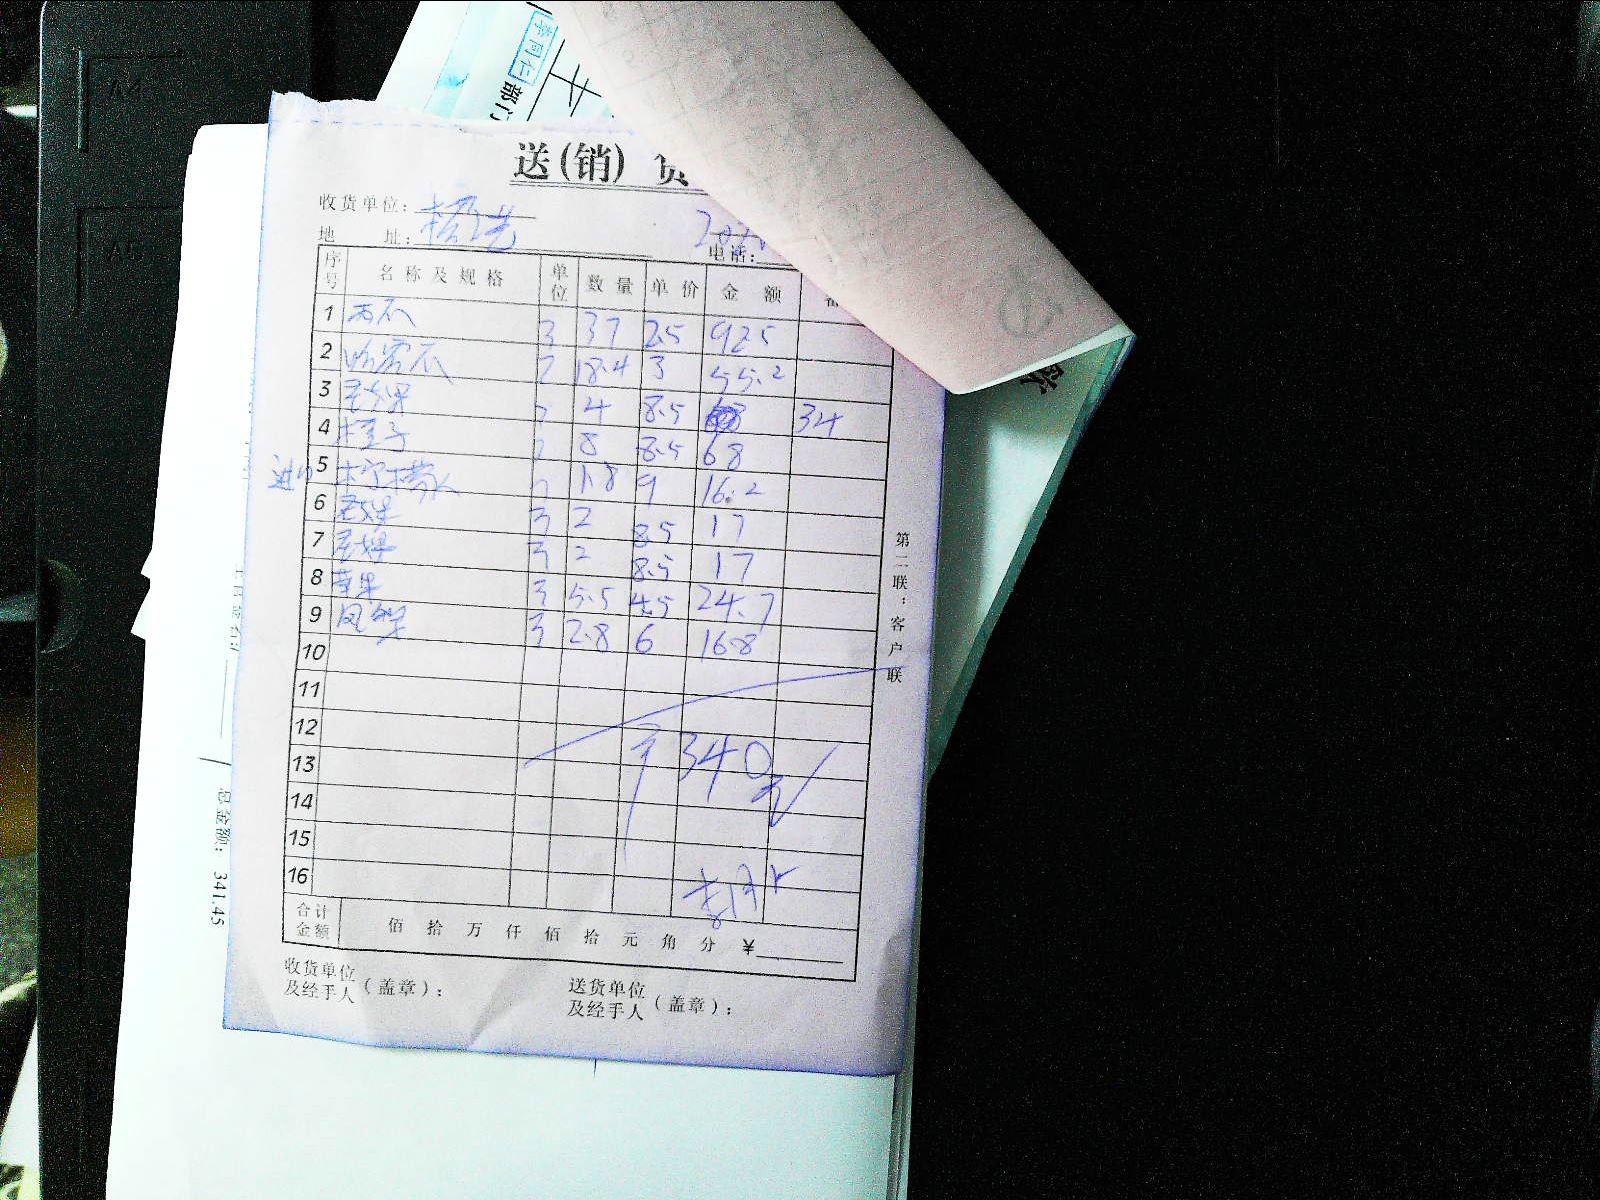 李同仁
部门
送(销) 货
收货单位:
地 址:
电话:
序号 名称及规格 单位 数量 单价 金额
1 西瓜 37 2.5 92.5
2 哈密瓜 18.4 3 55.2
3 4 8.5 34
4 橙子 8 8.5 68
进口
5 1.8 9 16.2
6 2 8.5 17
7 2 8.5 17
8 苹果 5.5 4.5 24.7
9 2.8 6 16.8
10
11
12
13
340元
14
15
16
合计金额 佰 拾 万 仟 佰 拾 元 角 分 ¥
收货单位及经手人(盖章):
送货单位及经手人(盖章):
第二联:客户联
总金额: 341.45